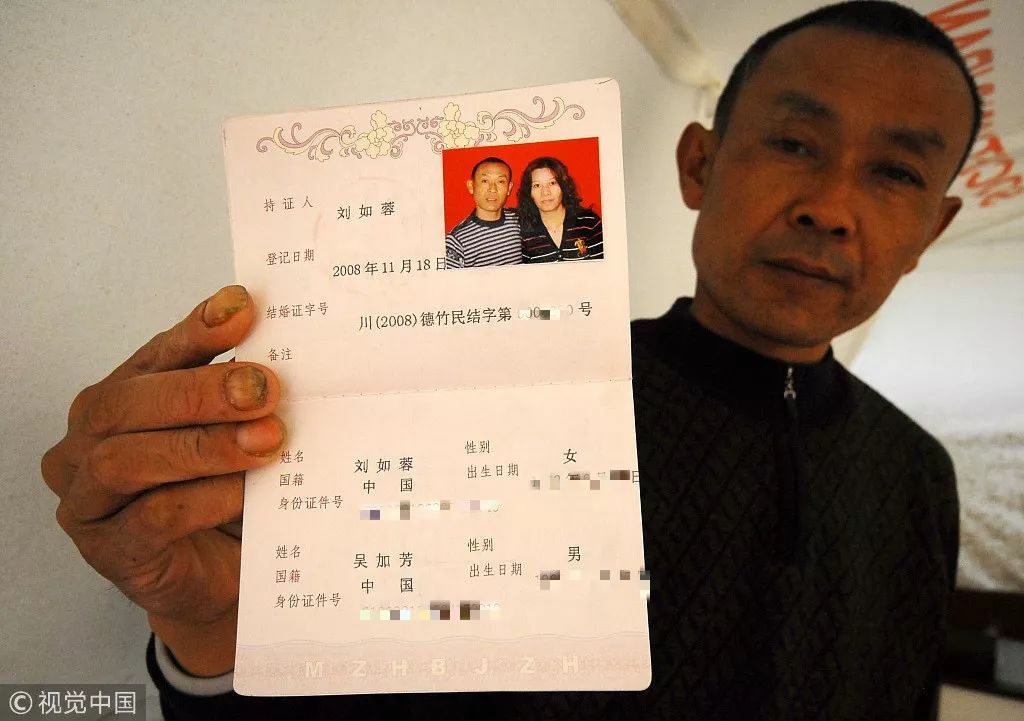 持证人 刘如蓉
登记日期 2008年11月18日
结婚证字号 川(2008)德竹民结字第 号
备注
姓名 刘如蓉 性别 女
国籍 中国 出生日期 日
身份证件号
姓名 吴加芳 性别 男
国籍 中国 出生日期
身份证件号
MZHBJZH
©视觉中国